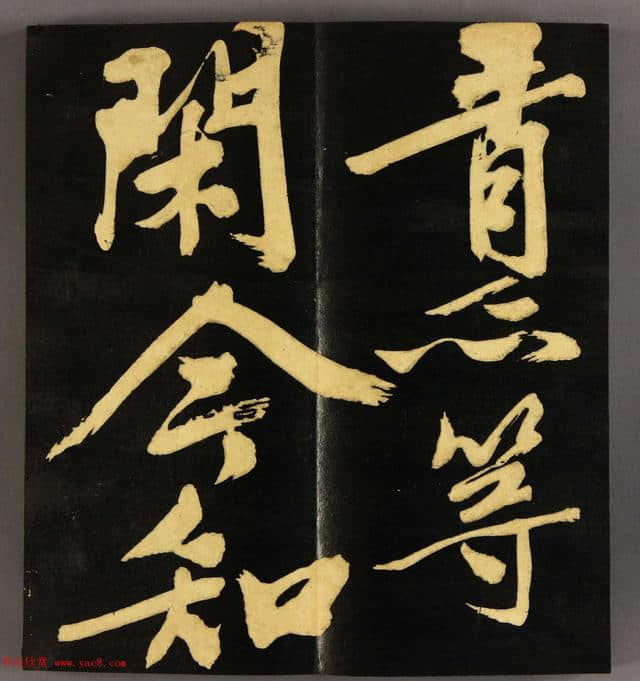 意等
閑今知
书法欣赏 www.yac8.com